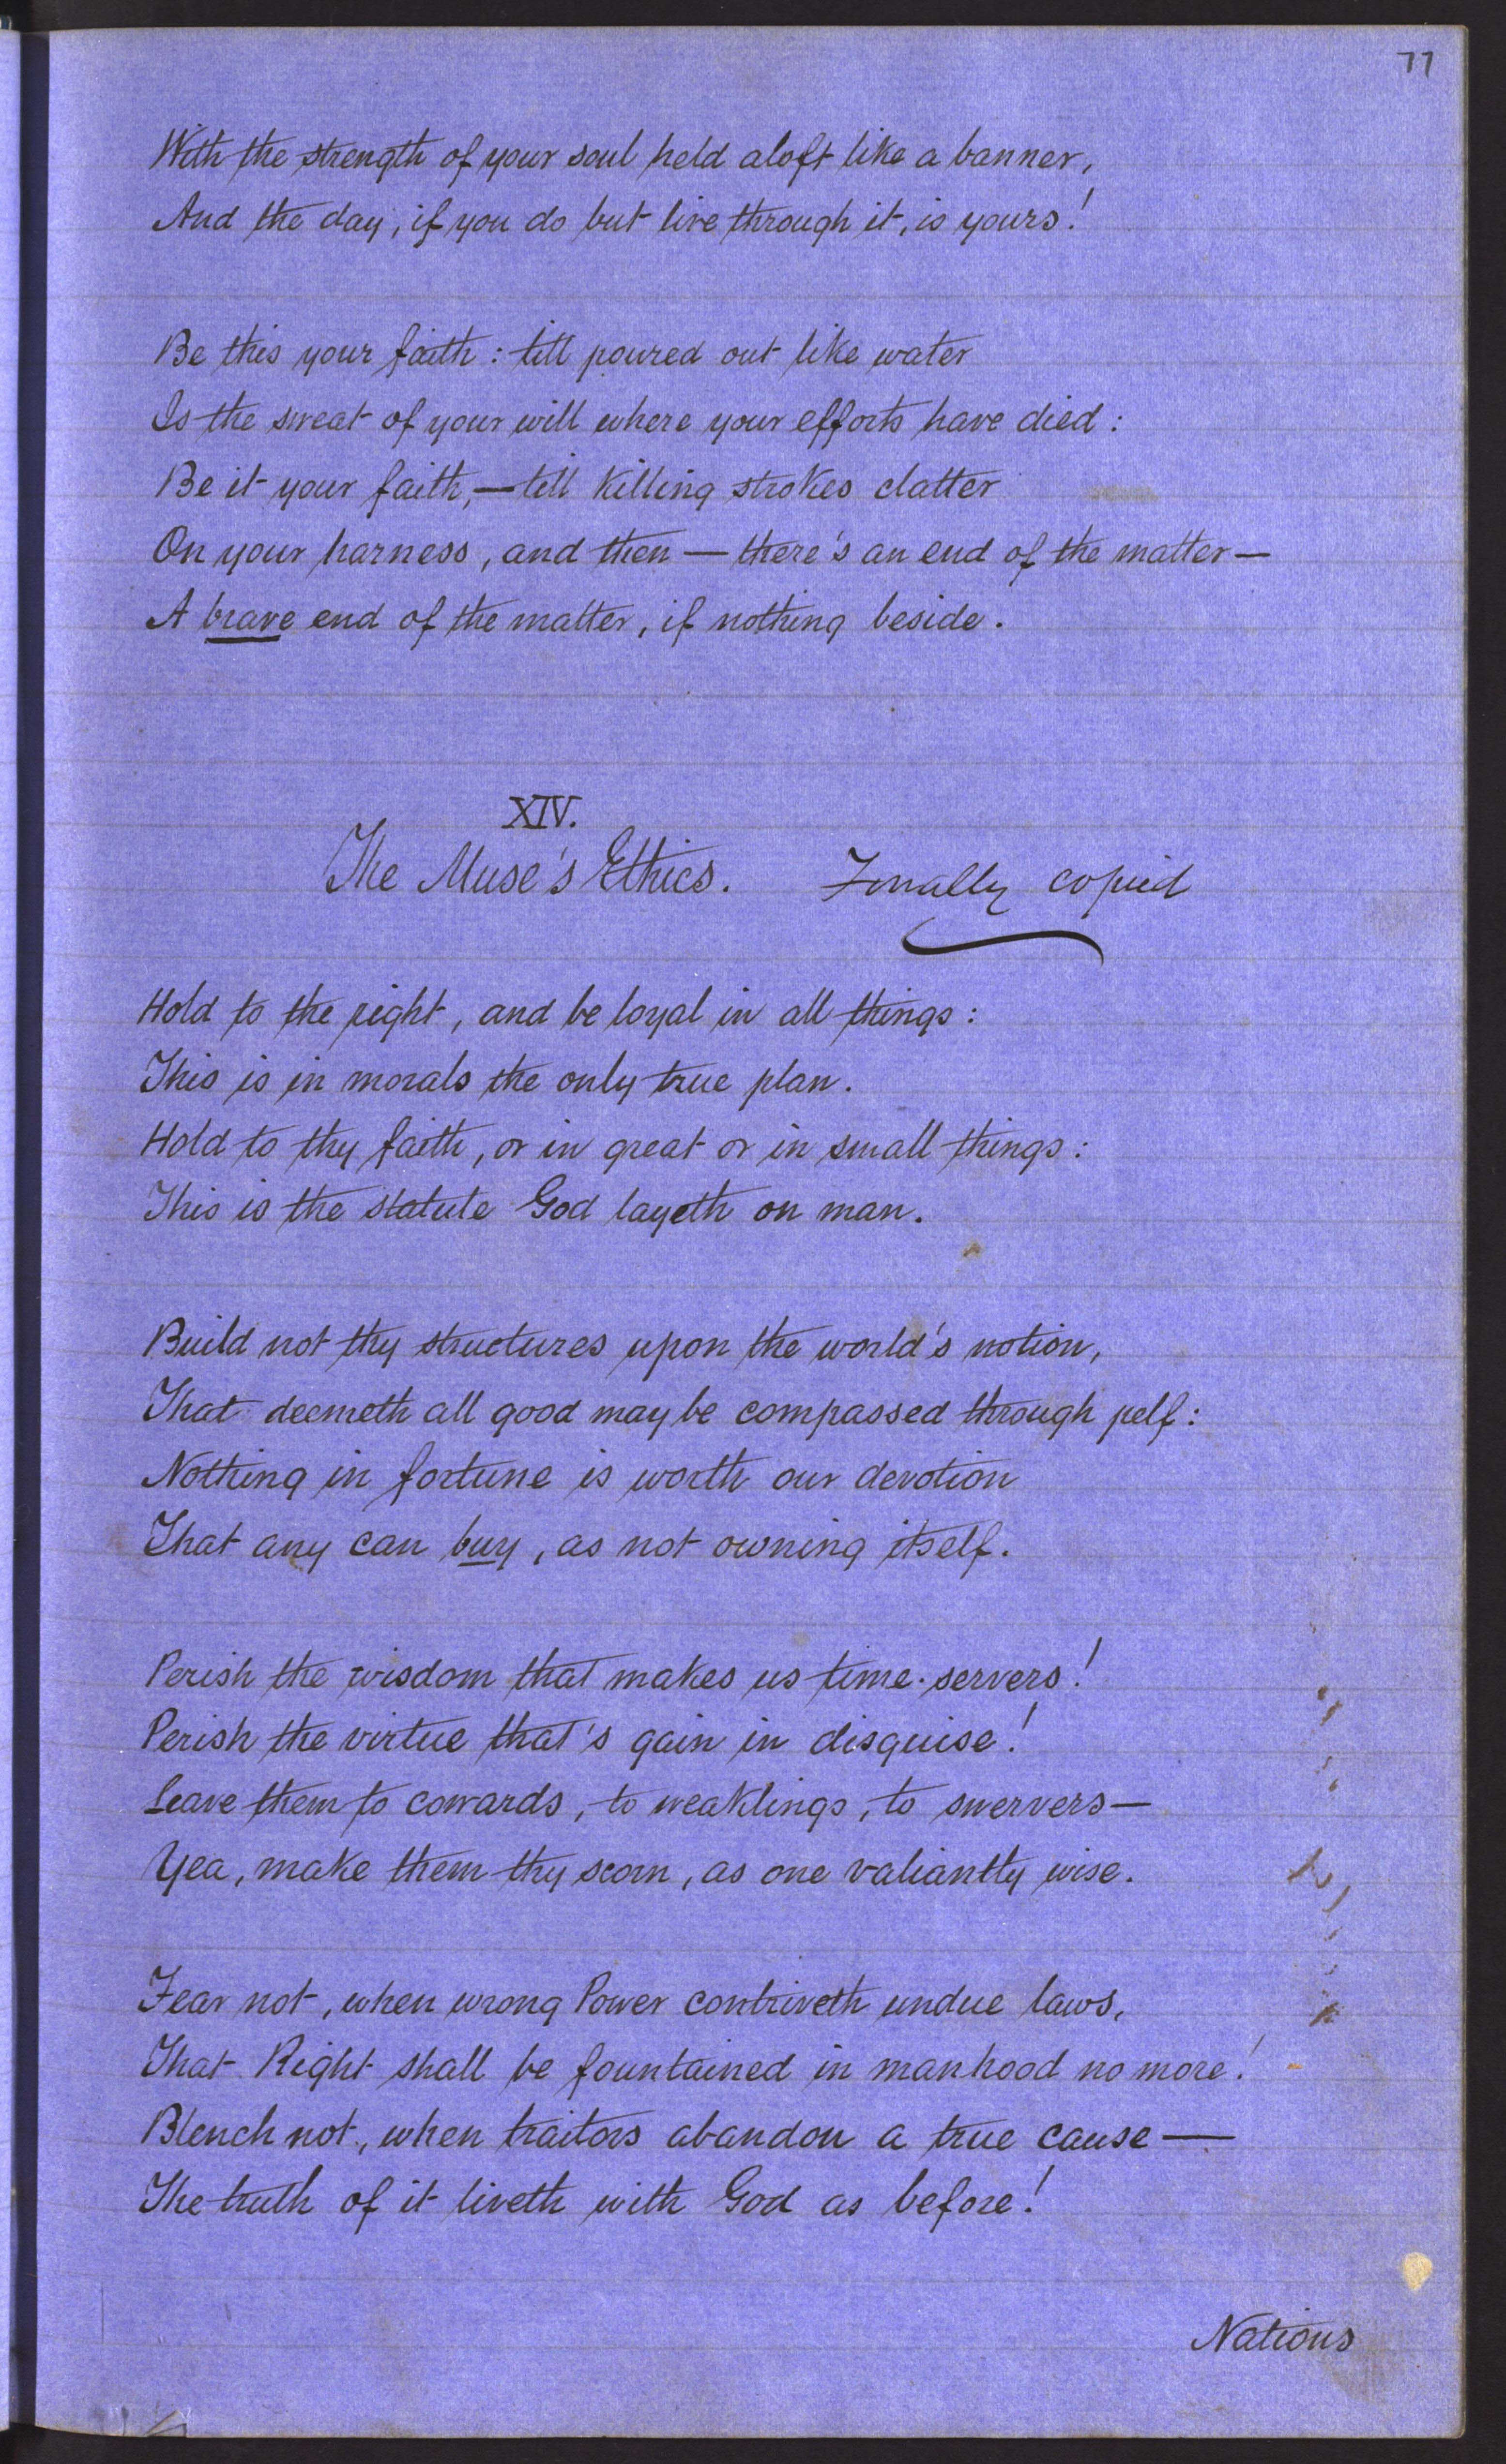 77
With the strength of your soul held aloft like a banner,
And the day, if you do but live through it, is yours!
Be this your faith: till poured out like water
Is the sweat of your will where your efforts have died:
Be it your faith,—till killing strokes clatter
On your harness, and then — there's an end of the matter—
A brave end of the matter, if nothing beside.
XIV.
The Muse's Ethics. Finally copied
Hold to the right, and be loyal in all things:
This is in morals the only true plan.
Hold to thy faith, or in great or in small things:
This is the statute God layeth on man.
Build not thy structures upon the world's notion,
That deemeth all good may be compassed through pelf:
Nothing in fortune is worth our devotion
That any can buy, as not owning itself.
Perish the wisdom that makes us time-servers!
Perish the virtue that's gain in disguise!
Leave them to cowards, to weaklings, to swervers—
Yea, make them thy scorn, as one valiantly wise.
Fear not, when wrong Power contriveth undue laws,
That Right shall be fountained in manhood no more!
Blench not, when traitors abandon a true cause—
The truth of it liveth with God as before!
Nations